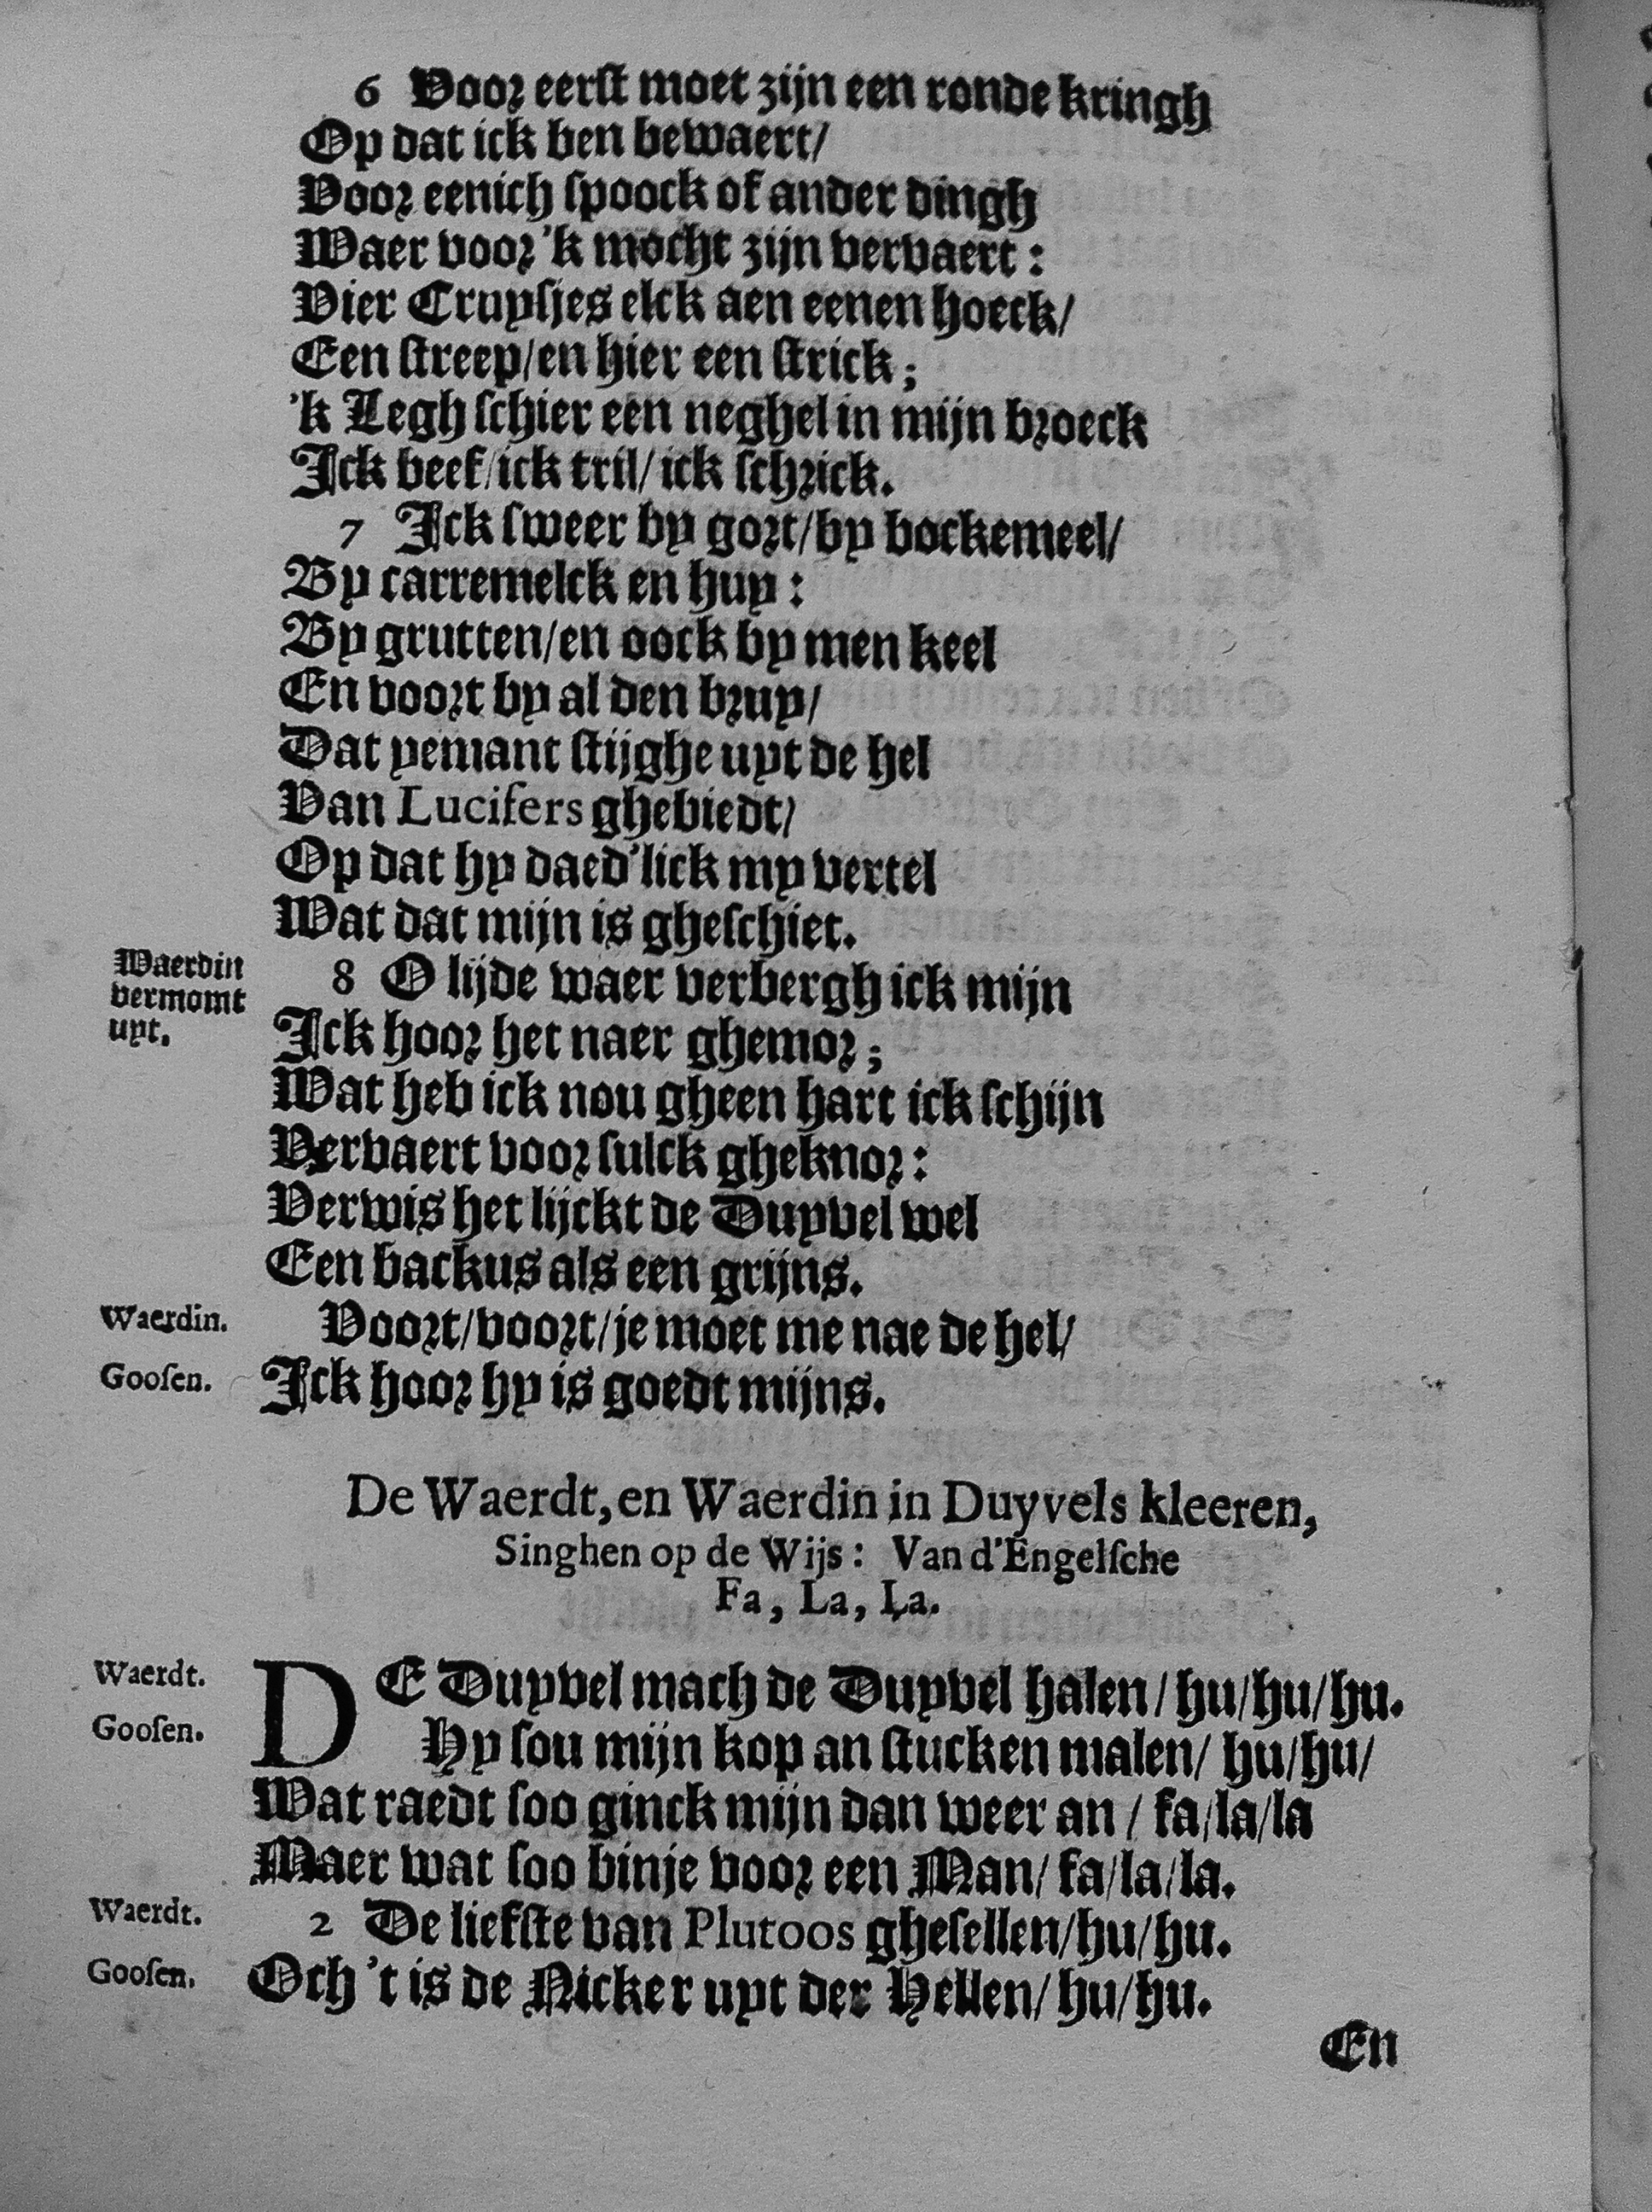 6 Voor eerſt moet zijn een ronde kringh
Op dat ick ben bewaert/
Voor eenich ſpoock of ander dingh
Waer voor 'k mocht zijn vervaert:
Vier Cruyſjes elck aen eenen hoeck/
Een ſtreep/en hier een ſtrick;
'k Legh ſchier een neghel in mijn broeck
Ick beef/ick tril/ick ſchrick.
7 Ick ſweer by gort/by bockemeel/
By carremelck en huy:
By grutten/en oock by men keel
En voort by al den bruy/
Dat yemant ſtijghe uyt de hel
Van Lucifers ghebiedt/
Op dat hy daed'lick my vertel
Wat dat mijn is gheſchiet.
Waerdin
vermomt
uyt.
8 O lijde waer verbergh ick mijn
Ick hoor het naer ghemor;
Wat heb ick nou gheen hart ick ſchijn
Vervaert voor ſulck gheknor:
Verwis het lijckt de Duyvel wel
Een backus als een grijns.
Waerdin. Voort/voort/je moet me nae de hel/
Gooſen. Ick hoor hy is goedt mijns.
De Waerdt, en Waerdin in Duyvels kleeren,
Singhen op de Wijs: Van d'Engelſche
Fa, La, La.
Waerdt. DE Duyvel mach de Duyvel halen/hu/hu/hu.
Gooſen. Hy ſou mijn kop an ſtucken malen/hu/hu/
Wat raedt ſoo ginck mijn dan weer an/fa/la/la
Maer wat ſoo binje voor een Man/fa/la/la.
Waerdt. 2 De liefſte van Plutoos gheſellen/hu/hu.
Gooſen. Och 't is de Nicker uyt der Hellen/hu/hu.
En